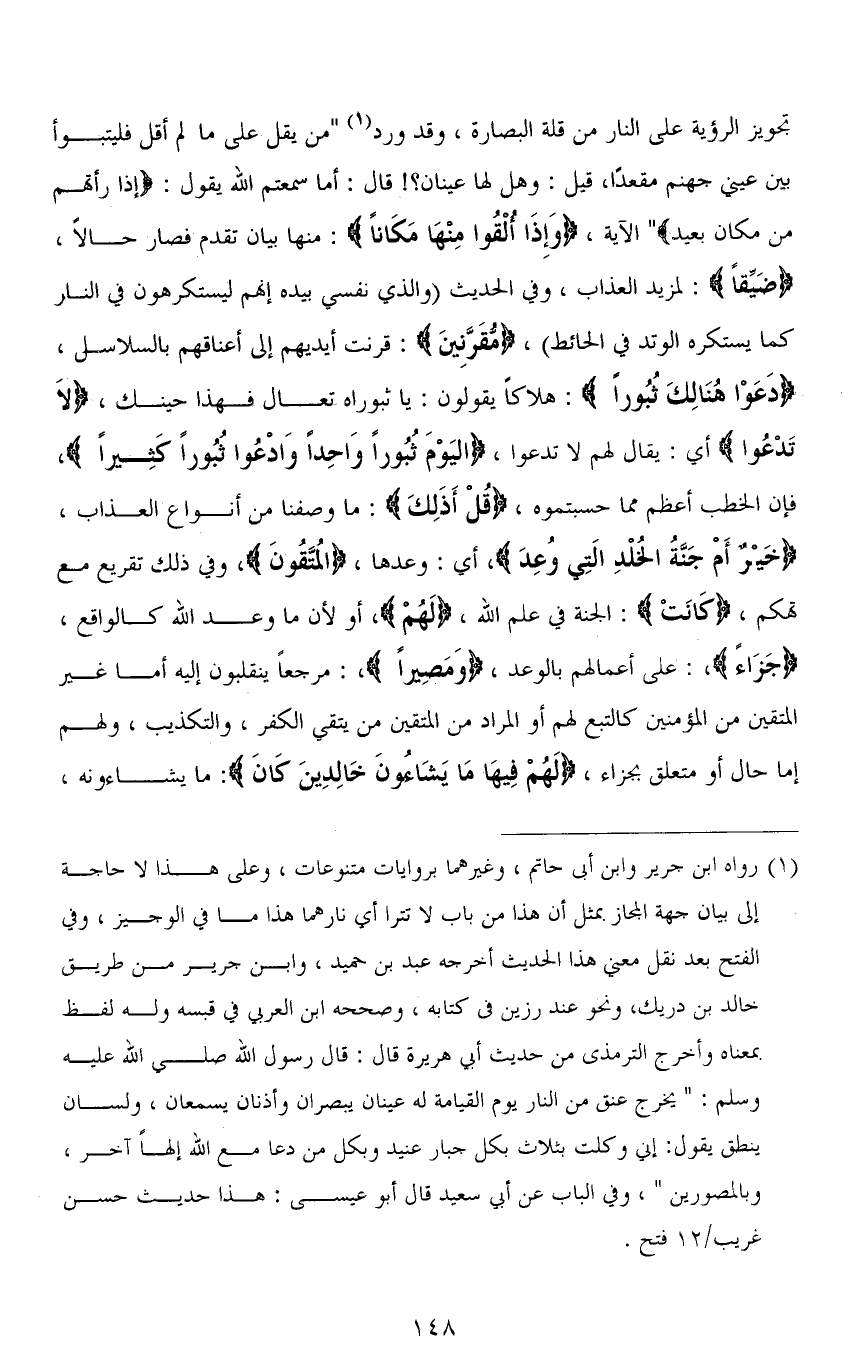 تجويز الرؤية على النار من قلة البصارة ، وقد ورد(١) "من يقل على ما لم أقل فليتبـــوأ
بين عيني جهنم مقعدًا، قيل : وهل لها عينان؟! قال : أما سمعتم الله يقول : ﴿إذا رأهـم
من مكان بعيد﴾" الآية ، ﴿وَإِذَا أُلْقُوا مِنْهَا مَكَاناً ﴾ : منها بيان تقدم فصار حـــالاً ،
﴿ضَيِّقاً ﴾ : لمزيد العذاب ، وفي الحديث (والذي نفسي بيده إنهم ليستكرهون في النـار
كما يستكره الوتد في الحائط) ، ﴿مُّقَرَّنِينَ ﴾ : قرنت أيديهم إلى أعناقهم بالسلاسـل ،
﴿دَعَوْا هُنَالِكَ ثُبُوراً ﴾ : هلاكاً يقولون : يا ثبوراه تعـــال فـهذا حينـك ، ﴿لاَ
تَدْعُوا ﴾ أي : يقال لهم لا تدعوا ، ﴿الْيَوْمَ ثُبُوراً وَاحِداً وَادْعُوا ثُبُوراً كَثِـــيراً ﴾،
فإن الخطب أعظم مما حسبتموه ، ﴿قُلْ أَذَلِكَ ﴾ : ما وصفنا من أنـــواع العـــذاب ،
﴿خَيْرٌ أَمْ جَنَّةُ الخُلْدِ الَتِي وُعِدَ ﴾، أي : وعدها ، ﴿الْمُتَّقُونَ ﴾، وفي ذلك تقريع مـع
تهكم ، ﴿كَانَتْ ﴾ : الجنة في علم الله ، ﴿لَهُمْ ﴾، أو لأن ما وعـــد الله كـالواقع ،
﴿جَزَاءً ﴾، : على أعمالهم بالوعد ، ﴿وَمَصِيراً ﴾، : مرجعاً ينقلبون إليه أمـــا غـير
المتقين من المؤمنين كالتبع لهم أو المراد من المتقين من يتقي الكفر ، والتكذيب ، ولهـم
إما حال أو متعلق بجزاء ، ﴿لَهُمْ فِيهَا مَا يَشَاءُونَ خَالِدِينَ كَانَ ﴾: ما يشـــاءونه ،
(١) رواه ابن جرير وابن أبى حاتم ، وغيرهما بروايات متنوعات ، وعلى هـــذا لا حاجـة
إلى بيان جهة المجاز بمثل أن هذا من باب لا تترا أي نارهما هذا مـــا في الوجـيز ، وفي
الفتح بعد نقل معني هذا الحديث أخرجه عبد بن حميد ، وابـن جريـر مـن طريـق
خالد بن دريك، ونحو عند رزين فى كتابه ، وصححه ابن العربي في قبسه ولـه لفـظ
بمعناه وأخرج الترمذى من حديث أبي هريرة قال : قال رسول الله صلـــي الله عليـه
وسلم : " يخرج عنق من النار يوم القيامة له عينان يبصران وأذنان يسمعان ، ولسـان
ينطق يقول: إني وكلت بثلاث بكل جبار عنيد وبكل من دعا مـع الله إلهـاً آخـر ،
وبالمصورين " ، وفي الباب عن أبي سعيد قال أبو عيســـى : هـذا حديـث حسـن
غريب/١٢ فتح .
١٤٨